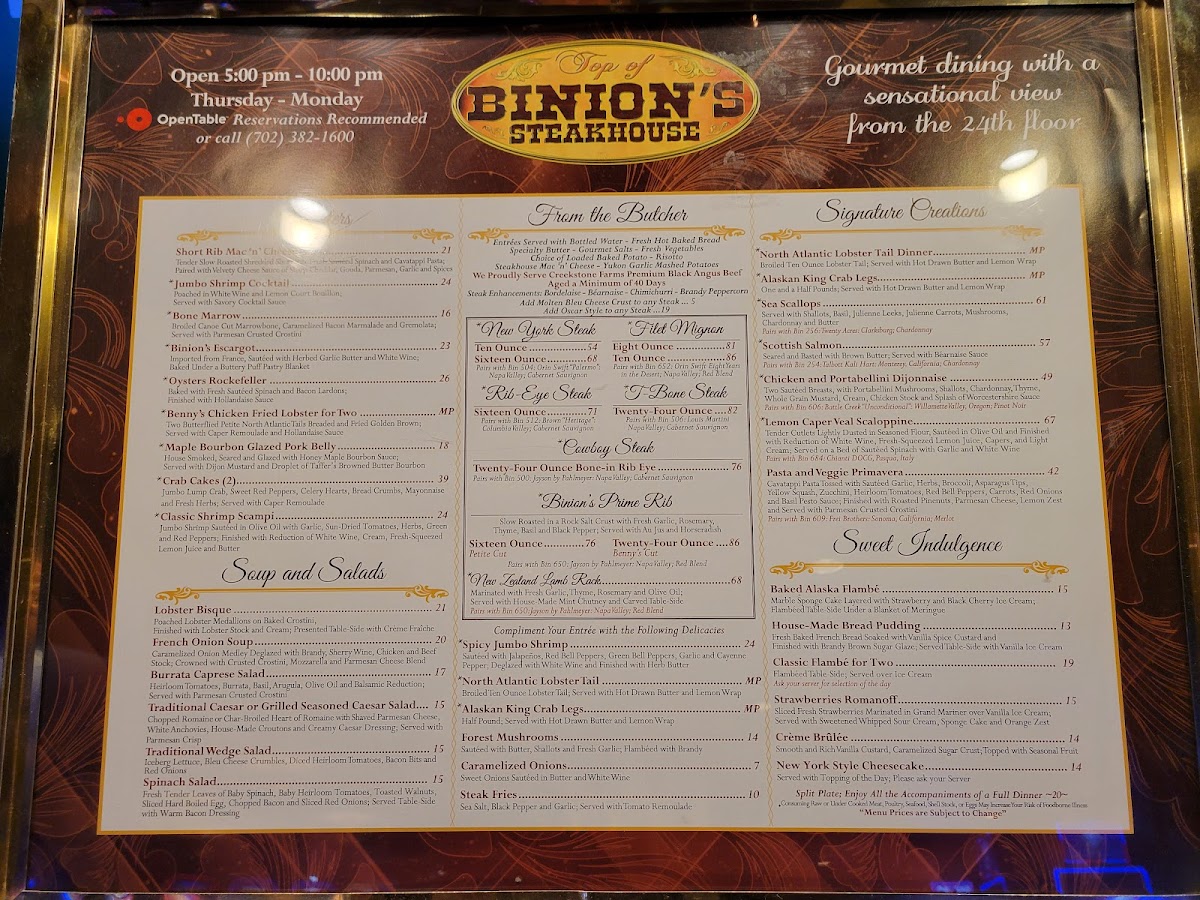 Open 5:00 pm - 10:00 pm
Thursday - Monday
OpenTable Reservations Recommended
or call (702) 382-1600
Top of
BINION'S
STEAKHOUSE
Gourmet dining with a
sensational view
from the 24th floor
Short Rib Mac 'n' 21
Tender Slow Roasted Spinach and Cavatappi Pasta;
Paired with Velvety Cheese Gouda, Parmesan, Garlic and Spices
*Jumbo Shrimp Cocktail 24
Poached in White Wine and Lemon Court Bouillon;
Served with Savory Cocktail Sauce
*Bone Marrow 16
Broiled Canoe Cut Marrowbone, Caramelized Bacon Marmalade and Gremolata;
Served with Parmesan Crusted Crostini
*Binion's Escargot 23
Imported from France, Sautéed with Herbed Garlic Butter and White Wine;
Baked Under a Buttery Puff Pastry Blanket
*Oysters Rockefeller 26
Baked with Fresh Sautéed Spinach and Bacon Lardons;
Finished with Hollandaise Sauce
*Benny's Chicken Fried Lobster for Two MP
Two Butterflied Petite North Atlantic Tails Breaded and Fried Golden Brown;
Served with Caper Remoulade and Hollandaise Sauce
*Maple Bourbon Glazed Pork Belly 18
House Smoked, Seared and Glazed with Honey Maple Bourbon Sauce;
Served with Dijon Mustard and Droplet of Taffer's Browned Butter Bourbon
*Crab Cakes (2) 39
Jumbo Lump Crab, Sweet Red Peppers, Celery Hearts, Bread Crumbs, Mayonnaise
and Fresh Herbs; Served with Caper Remoulade
*Classic Shrimp Scampi 24
Jumbo Shrimp Sautéed in Olive Oil with Garlic, Sun-Dried Tomatoes, Herbs, Green
and Red Peppers; Finished with Reduction of White Wine, Cream, Fresh-Squeezed
Lemon Juice and Butter
Soup and Salads
Lobster Bisque 21
Poached Lobster Medallions on Baked Crostini,
Finished with Lobster Stock and Cream; Presented Table-Side with Crème Fraîche
French Onion Soup 20
Caramelized Onion Medley Deglazed with Brandy, Sherry Wine, Chicken and Beef
Stock; Crowned with Crusted Crostini, Mozzarella and Parmesan Cheese Blend
Burrata Caprese Salad 17
Heirloom Tomatoes, Burrata, Basil, Arugula, Olive Oil and Balsamic Reduction;
Served with Parmesan Crusted Crostini
Traditional Caesar or Grilled Seasoned Caesar Salad.... 15
Chopped Romaine or Char-Broiled Heart of Romaine with Shaved Parmesan Cheese,
White Anchovies, House-Made Croutons and Creamy Caesar Dressing; Served with
Parmesan Crisp
Traditional Wedge Salad 15
Iceberg Lettuce, Bleu Cheese Crumbles, Diced Heirloom Tomatoes, Bacon Bits and
Red Onions
Spinach Salad 15
Fresh Tender Leaves of Baby Spinach, Baby Heirloom Tomatoes, Toasted Walnuts,
Sliced Hard Boiled Egg, Chopped Bacon and Sliced Red Onions; Served Table-Side
with Warm Bacon Dressing
From the Butcher
Entrées Served with Bottled Water - Fresh Hot Baked Bread
Specialty Butter - Gourmet Salts - Fresh Vegetables
Choice of Loaded Baked Potato - Risotto
Steakhouse Mac 'n' Cheese - Yukon Garlic Mashed Potatoes
We Proudly Serve Creekstone Farms Premium Black Angus Beef
Aged a Minimum of 40 Days
Steak Enhancements: Bordelaise - Béarnaise - Chimichurri - Brandy Peppercorn
Add Molten Bleu Cheese Crust to any Steak ... 5
Add Oscar Style to any Steak ...19
*New York Steak
Ten Ounce 54
Sixteen Ounce 68
Pairs with Bin 504: Orin Swift "Palermo":
Napa Valley; Cabernet Sauvignon
*Filet Mignon
Eight Ounce 81
Ten Ounce 86
Pairs with Bin 652: Orin Swift Eight Years
in the Desert; Napa Valley; Red Blend
*Rib-Eye Steak
Sixteen Ounce 71
Pairs with Bin 512: Brown "Heritage":
Columbia Valley; Cabernet Sauvignon
*T-Bone Steak
Twenty-Four Ounce 82
Pairs with Bin 506: Louis Martini
Napa Valley; Cabernet Sauvignon
*Cowboy Steak
Twenty-Four Ounce Bone-in Rib Eye 76
Pairs with Bin 500: Jayson by Pahlmeyer: Napa Valley; Cabernet Sauvignon
*Binion's Prime Rib
Slow Roasted in a Rock Salt Crust with Fresh Garlic, Rosemary,
Thyme, Basil and Black Pepper; Served with Au Jus and Horseradish
Sixteen Ounce 76
Petite Cut
Twenty-Four Ounce 86
Benny's Cut
Pairs with Bin 650: Jayson by Pahlmeyer: Napa Valley; Red Blend
*New Zealand Lamb Rack 68
Marinated with Fresh Garlic, Thyme, Rosemary and Olive Oil;
Served with House-Made Mint Chutney and Carved Table-Side
Pairs with Bin 650: Jayson by Pahlmeyer: Napa Valley; Red Blend
Compliment Your Entrée with the Following Delicacies
*Spicy Jumbo Shrimp 24
Sautéed with Jalapeños, Red Bell Peppers, Green Bell Peppers, Garlic and Cayenne
Pepper; Deglazed with White Wine and Finished with Herb Butter
*North Atlantic Lobster Tail MP
Broiled Ten Ounce Lobster Tail; Served with Hot Drawn Butter and Lemon Wrap
*Alaskan King Crab Legs MP
Half Pound; Served with Hot Drawn Butter and Lemon Wrap
Forest Mushrooms 14
Sautéed with Butter, Shallots and Fresh Garlic; Flambéed with Brandy
Caramelized Onions 7
Sweet Onions Sautéed in Butter and White Wine
Steak Fries 10
Sea Salt, Black Pepper and Garlic; Served with Tomato Remoulade
Signature Creations
*North Atlantic Lobster Tail Dinner MP
Broiled Ten Ounce Lobster Tail; Served with Hot Drawn Butter and Lemon Wrap
*Alaskan King Crab Legs MP
One and a Half Pounds; Served with Hot Drawn Butter and Lemon Wrap
*Sea Scallops 61
Served with Shallots, Basil, Julienne Leeks, Julienne Carrots, Mushrooms,
Chardonnay and Butter
Pairs with Bin 256: Twenty Acres: Clarksburg; Chardonnay
*Scottish Salmon 57
Seared and Basted with Brown Butter; Served with Béarnaise Sauce
Pairs with Bin 254: Talbott Kali Hart: Monterey, California; Chardonnay
*Chicken and Portabellini Dijonnaise 49
Two Sautéed Breasts, with Portabellini Mushrooms, Shallots, Chardonnay, Thyme,
Whole Grain Mustard, Cream, Chicken Stock and Splash of Worcestershire Sauce
Pairs with Bin 606: Battle Creek "Unconditional": Willamette Valley, Oregon; Pinot Noir
*Lemon Caper Veal Scaloppine 67
Tender Cutlets Lightly Dusted in Seasoned Flour, Sautéed in Olive Oil and Finished
with Reduction of White Wine, Fresh-Squeezed Lemon Juice, Capers, and Light
Cream; Served on a Bed of Sautéed Spinach with Garlic and White Wine
Pairs with Bin 684: Chianti DOCG, Pasqua, Italy
Pasta and Veggie Primavera 42
Cavatappi Pasta Tossed with Sautéed Garlic, Herbs, Broccoli, Asparagus Tips,
Yellow Squash, Zucchini, Heirloom Tomatoes, Red Bell Peppers, Carrots, Red Onions
and Basil Pesto Sauce; Finished with Roasted Pinenuts, Parmesan Cheese, Lemon Zest
and Served with Parmesan Crusted Crostini
Pairs with Bin 609: Foxt Brothers: Sonoma, California; Merlot
Sweet Indulgence
Baked Alaska Flambé 15
Marble Sponge Cake Layered with Strawberry and Black Cherry Ice Cream;
Flambéed Table-Side Under a Blanket of Meringue
House-Made Bread Pudding 13
Fresh Baked French Bread Soaked with Vanilla Spice Custard and
Finished with Brandy Brown Sugar Glaze; Served Table-Side with Vanilla Ice Cream
Classic Flambé for Two 19
Flambéed Table-Side; Served over Ice Cream
Ask your server for selection of the day
Strawberries Romanoff 15
Sliced Fresh Strawberries Marinated in Grand Mariner over Vanilla Ice Cream;
Served with Sweetened Whipped Sour Cream, Sponge Cake and Orange Zest
Crème Brûlée 14
Smooth and Rich Vanilla Custard, Caramelized Sugar Crust; Topped with Seasonal Fruit
New York Style Cheesecake 14
Served with Topping of the Day; Please ask your Server
Split Plate; Enjoy All the Accompaniments of a Full Dinner ~20~
*Consuming Raw or Under Cooked Meat, Poultry, Seafood, Shell Stock, or Eggs May Increase Your Risk of Foodborne Illness
"Menu Prices are Subject to Change"